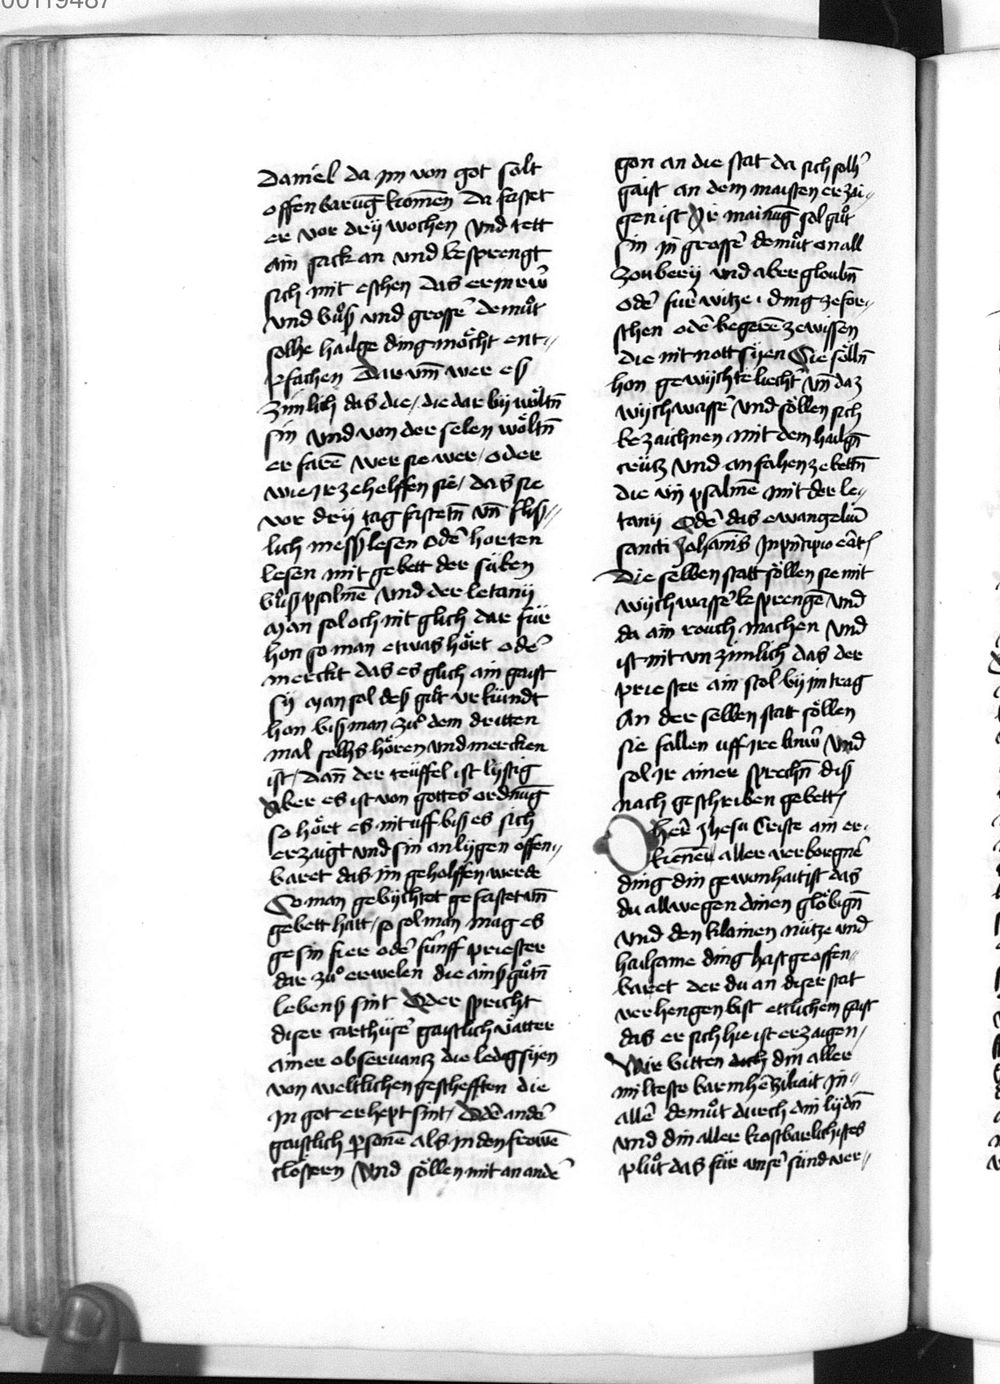 00119487
Daniel da im von got solt
offenbarūg komen Da fastet
er vor drÿ wochen Vnd tett
ain sack an vnd besprengt
sich mit eschen Das er in rẘ
vnd bůß vnd grosser demůt
solhe hailge ding möcht ent-
pfachen Dar vm̄ wer es
zimlich das die / die dar bÿ wöltn̄
sin vnd von der selen wöltn̄
er farē wer sie wer / oder
wie ir ze helffen sie / das sie
vor drÿ tag fastetn̄ vn̄ fliß-
lich mess lesen oder horten
lesen mit gebett der suben
bůß psalmē vnd der letanÿ
Man sol och nit glich dar für
hon so man etwas hört oder
merckt das es glich ain gaist
sÿ Man sol deß gůt vrkúndt
hon biß man zů dem dritten
mal solhs hören vnd mercken
ist / Dan̄ der teüffel ist lÿstig
Aber es ist von gottes ordnūg
so hört es nit uff biß es sich
erzaigt vnd sin anlÿgen offen-
baret das im geholffen werde
So man gebÿchtet gefastet vn̄
gebett hatt / so sol man mag es
gesin fier oder fünff priester
dar zů erwelen die ains gůtn̄
lebens sint Oder spricht
diser carthüser gaistlich vätter
ainer obseruantz die ledig sÿen
von weltlichen geschefften die
In got erhept sint / Oder ander
gaistlich psonē als in den frowē
clöstern Vnd söllen mit an ander
gon an die stat da sich solh
gaist an dem maisten erzai-
gen ist Ir mainūg sol gůt
sin in grosser demůt on all
zouberÿ vnd aber gloubn̄
oder fürwitze ding ze for-
schen oder begerē ze wissen
die nit nott sÿen Sie sölln̄
hon gewÿchte liecht vn̄ daz
wÿchwasser vnd söllen sich
bezaichnen mit dem hailgn̄
creütz vnd anfahen ze bettn̄
die vij psalmē mit der le-
tanÿ Oder das ewangeliū
sancti Johānis In pncipio erāt /
Die selben statt söllen sie mit
wÿchwasser besprengē vnd
da ain rouch machen Vnd
ist nit vnzimlich das der
priester ain stol bÿ im trag
An der selben statt söllen
sie fallen uff ire knẘ Vnd
sol ir ainer sprechn̄ diß
nach geschriben gebett /
O her Jhesu Criste ain er-
kenner aller verborgnē
ding din gewonhait ist das
du allwegen dinen glöbign̄
vnd den klainen nütze vnd
hailsame ding hast geoffen-
baret der du an diser stat
verhengen bist ettlichem gaist
das er sich hie ist erzaigen /
Wir bitten dich din aller
milteste barmhertzikait in
aller demůt durch din lÿdn̄
vnd din aller kostbarlichistes
plůt das für vnser sünd ver-